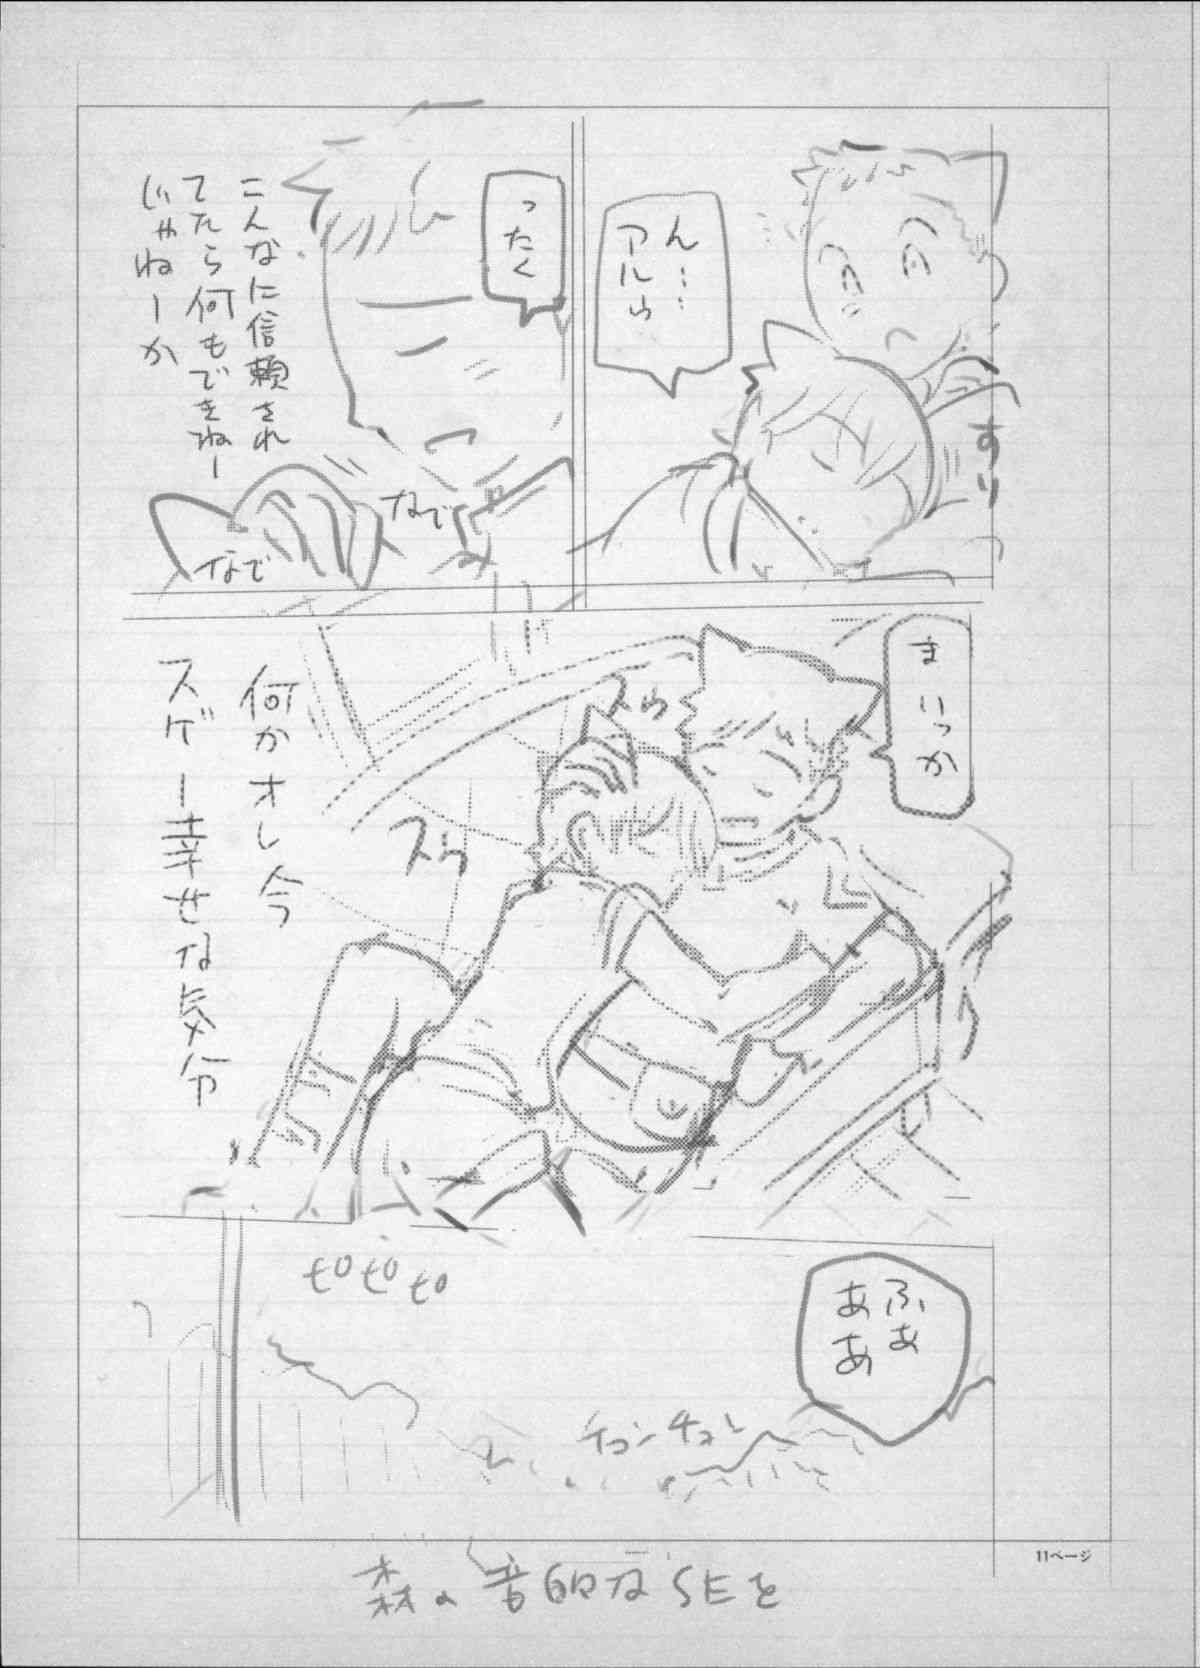 ん…
アルゥ
すり
ったく
こんなに信頼され
てたら何もできねー
じゃねーか
なで
なで
まいっか
スゥ
スゥ
何かオレ今
スゲー幸せな気分
ふぁ
ああ
チュンチュン
11ページ
森の音的なSEを